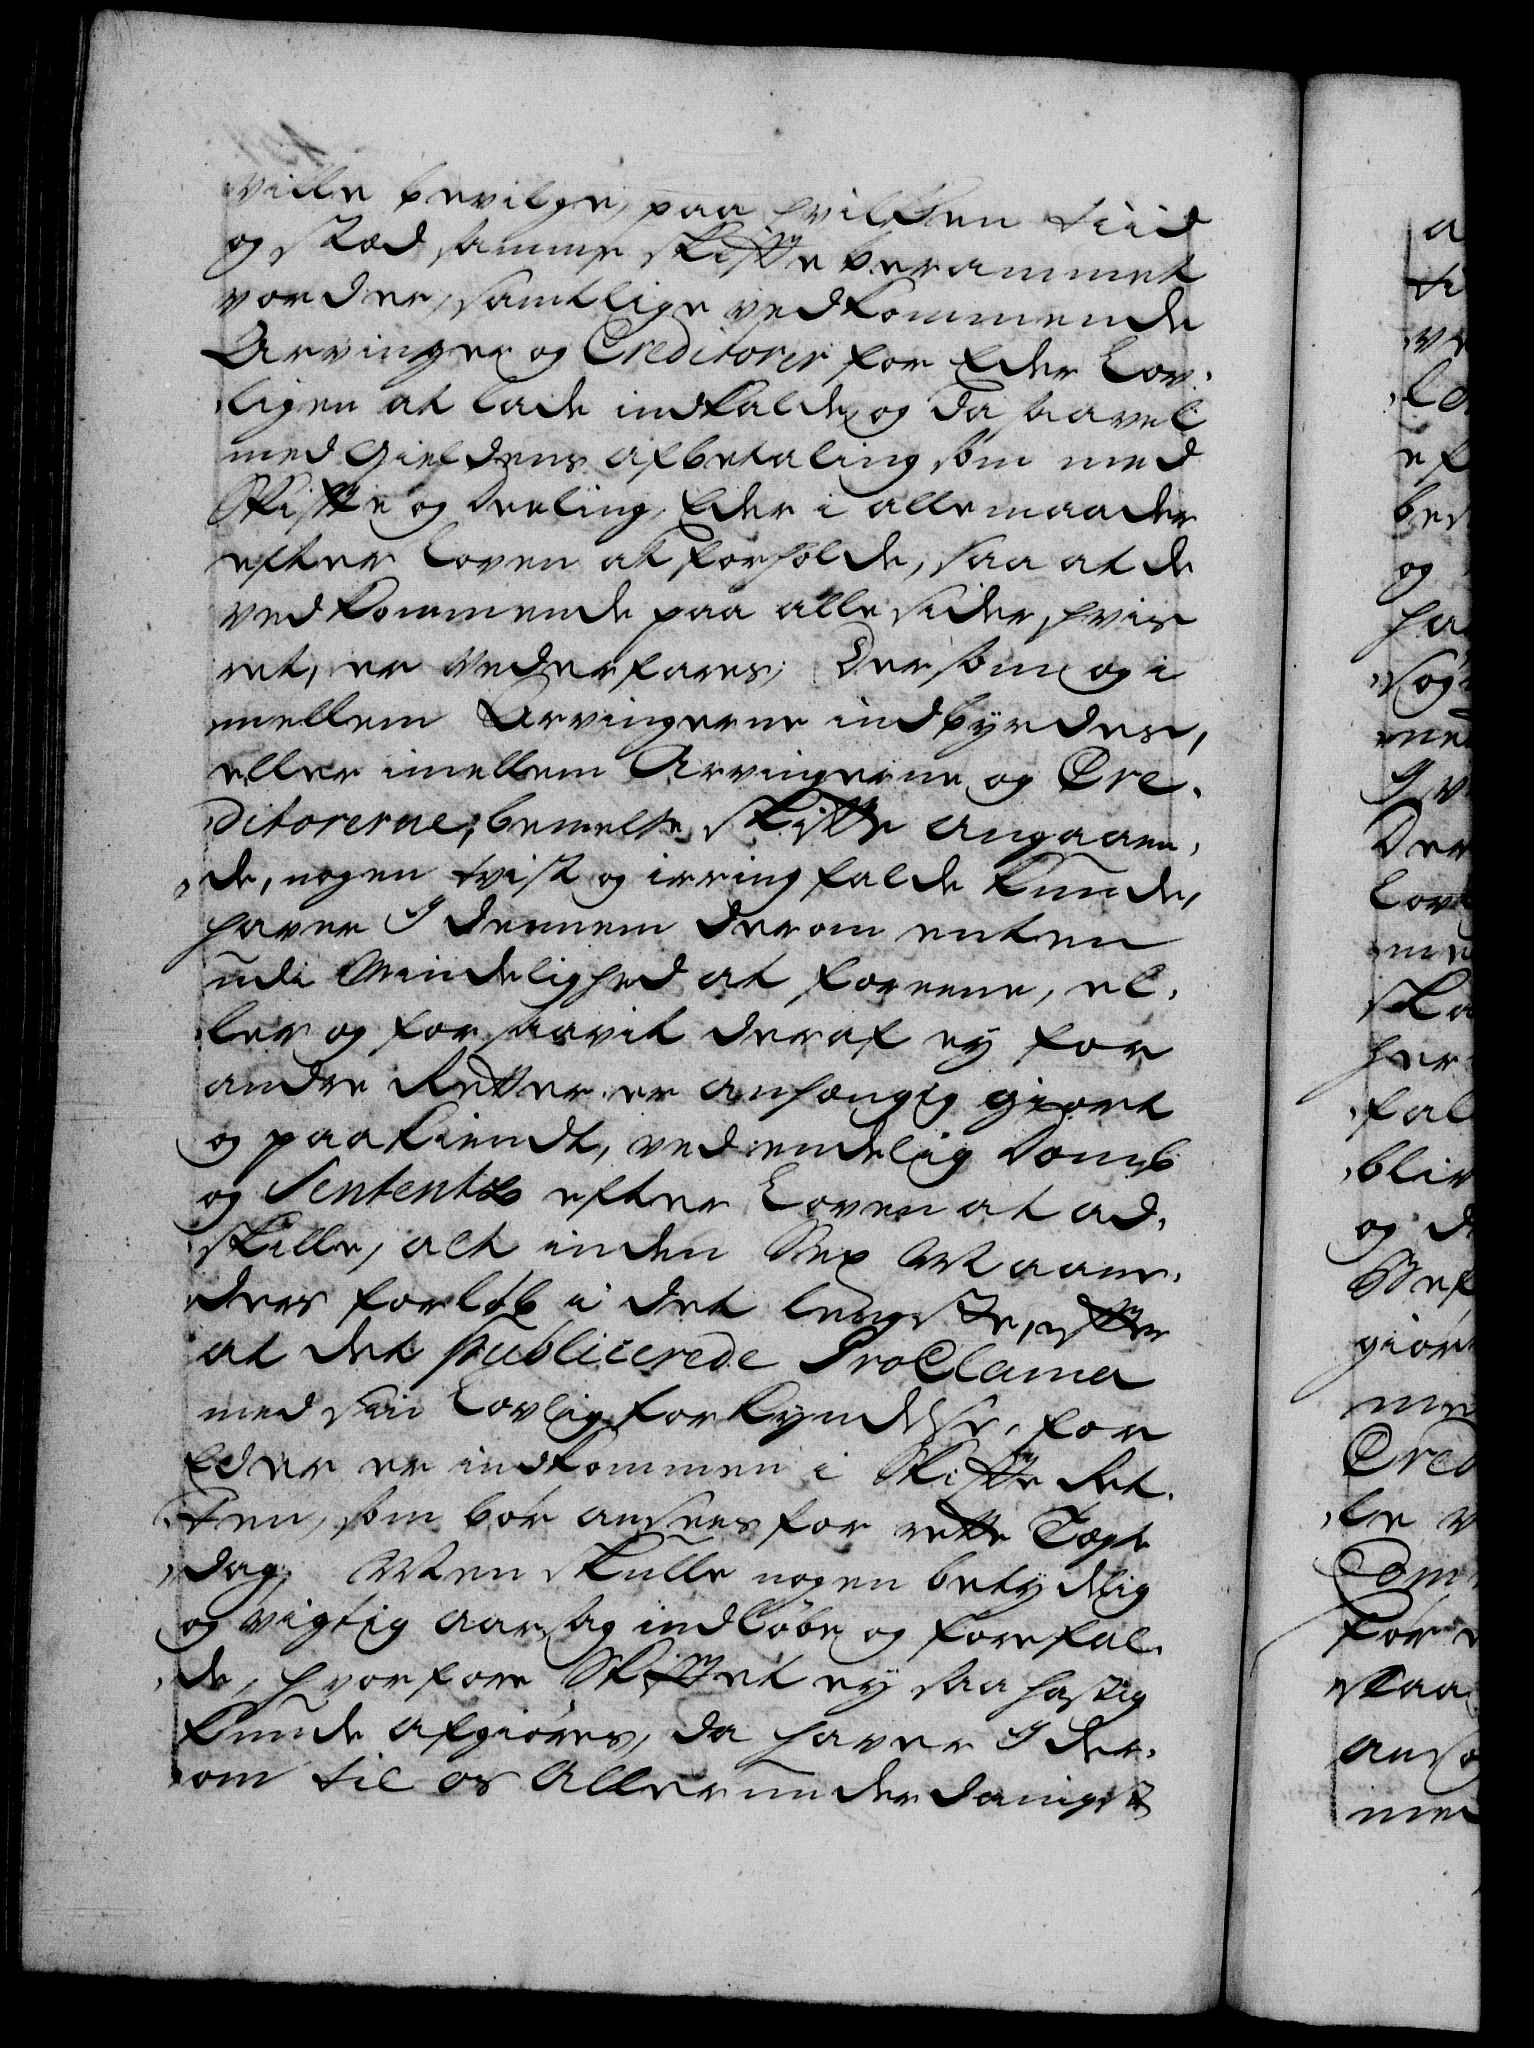 ville bevilge, paa hvilken tiid
og stæd samme skifte berammet
vorder, samtlige vedkommende
Arvinger og Creditorer for Eder Lov-
ligen at lade indkalde, og da saavel
med Gieldens afbetaling som med
Skifte og Deeling, Eder i alle maader
efter Loven at forholde, saa at de
vedkommende paa alle sider, hvis
ret, er vederfares; Dersom og i
mellem Arvingerne indbyrdes,
eller imellem Arvingerne og Cre-
ditorerne, bemelte skifte angaaen-
de, nogen tvist og irring falde kunde,
haver I dennem derom enten
udi Mindelighed at foreene, el-
ler og for saavit deraf ey for
andre Retter er anhængig giort
og paakiendt, ved endelig Domb
og Sententz efter Loven at ad-
skille, alt inden Sex Maane-
ders forløb i det lengste, efter
at det publicerede Proclama
med sin Lovlig forkyndelse, for
Eder er indkommen i Skifte Ret-
ten, som bør ansees for rette Tægte
dag; Men skulle nogen betydelig
og vigtig aarsag indløbe og forefal-
de, hvorfore Skiftet ey saa hastig
kunde afgiøres, da haver I der-
om til os Allerunderdanigst